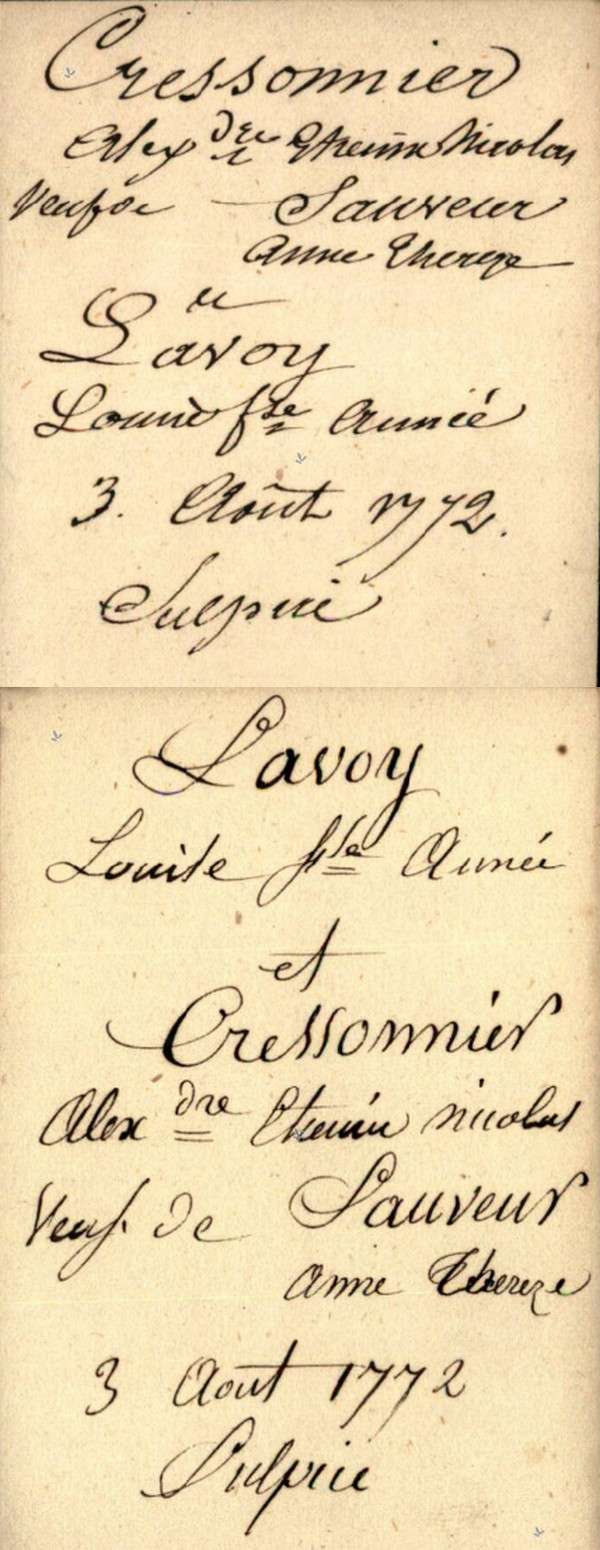 Cressonnier
Alex dre Etienne Nicolas
Veuf de - Sauveur
Anne Thereze
et
Lavoy
Louise fse Aimée
3. Août 1772.
Sulpice
Lavoy
Louise fse Aimée
et
Cressonnier
Alex dre Etienne Nicolas
Veuf. de Sauveur
Anne Thereze
3 Aout 1772
Sulpice